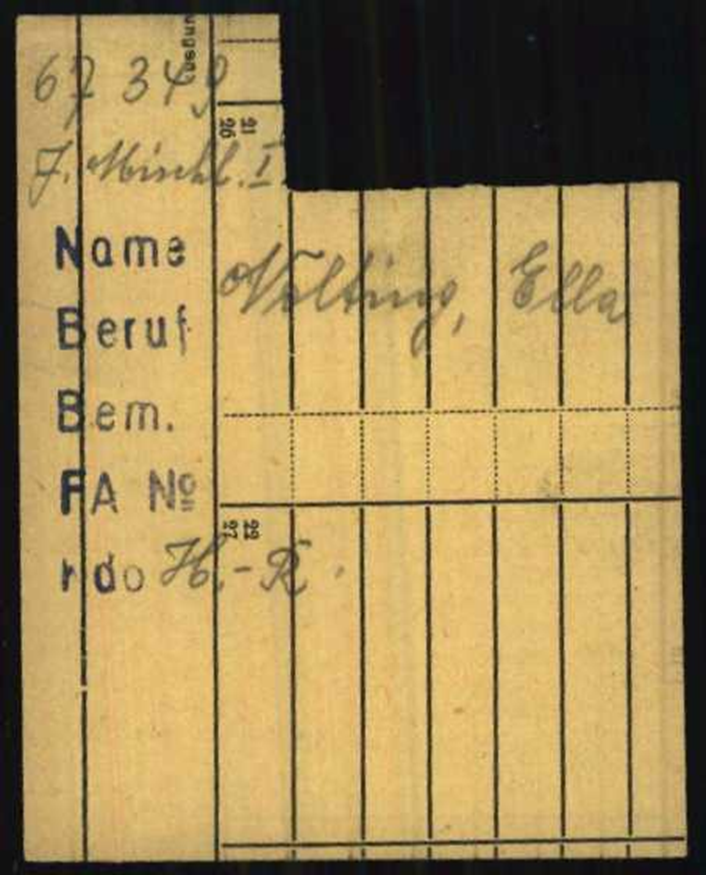 67 349
J. Mischl. I.
21
26
Name Nolting, Ella
Beruf
Bem.
FA No
22
27
H.-R.